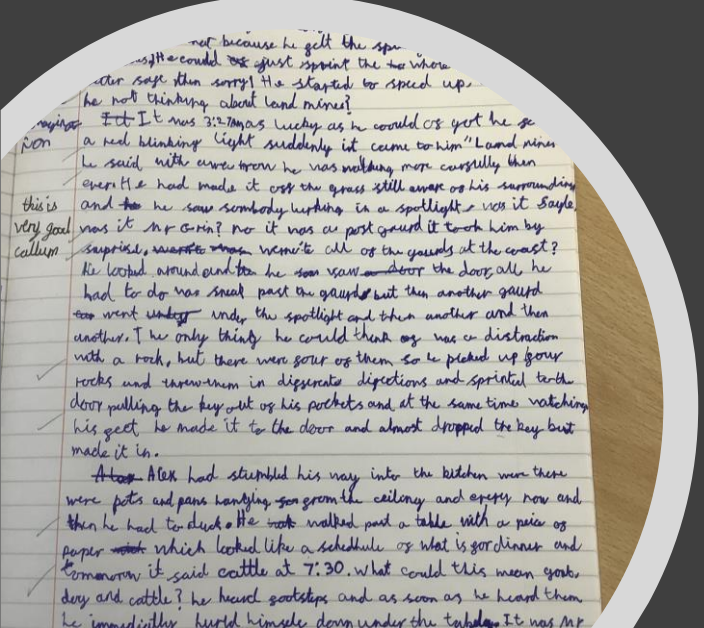 not because he felt the
He could just sprint the whole
safe then sorry! He started to speed up.
he not thinking about land mines?
It was 3:27am as lucky as he coould of got he
a red blinking light suddenly it came to him "Land mines
he said with he was walking more carfully then
ever. He had made it off the grass still aware of his surrounding
and he saw sombody lurking in a spotlight, was it Sayle,
this is
very good
callum
was it Mr Grin? no it was a post gaurd it took him by
suprise. weren't all of the gaurds at the coast?
He looked around and he saw the door, all he
had to do was sneak past the gaurds but then another gaurd
went under the spotlight and then another and then
another. The only thing he could think of was a distraction
with a rock, but there were four of them so he picked up four
rocks and threw them in differents directions and sprinted to the
door pulling the key out of his pockets and at the same time watching
his feet he made it to the door and almost dropped the key but
made it in.
Alex had stumbled his way into the kitchen were there
were pots and pans hanging from the and every now and
then he had to duck. He walked past a table with a peice of
paper which looked like a schedhule of what is for dinner and
it said cattle at 7:30. What could this mean
and cattle? he heard footsteps and as soon as he heard them
he hurld himsele down under the It was Mr